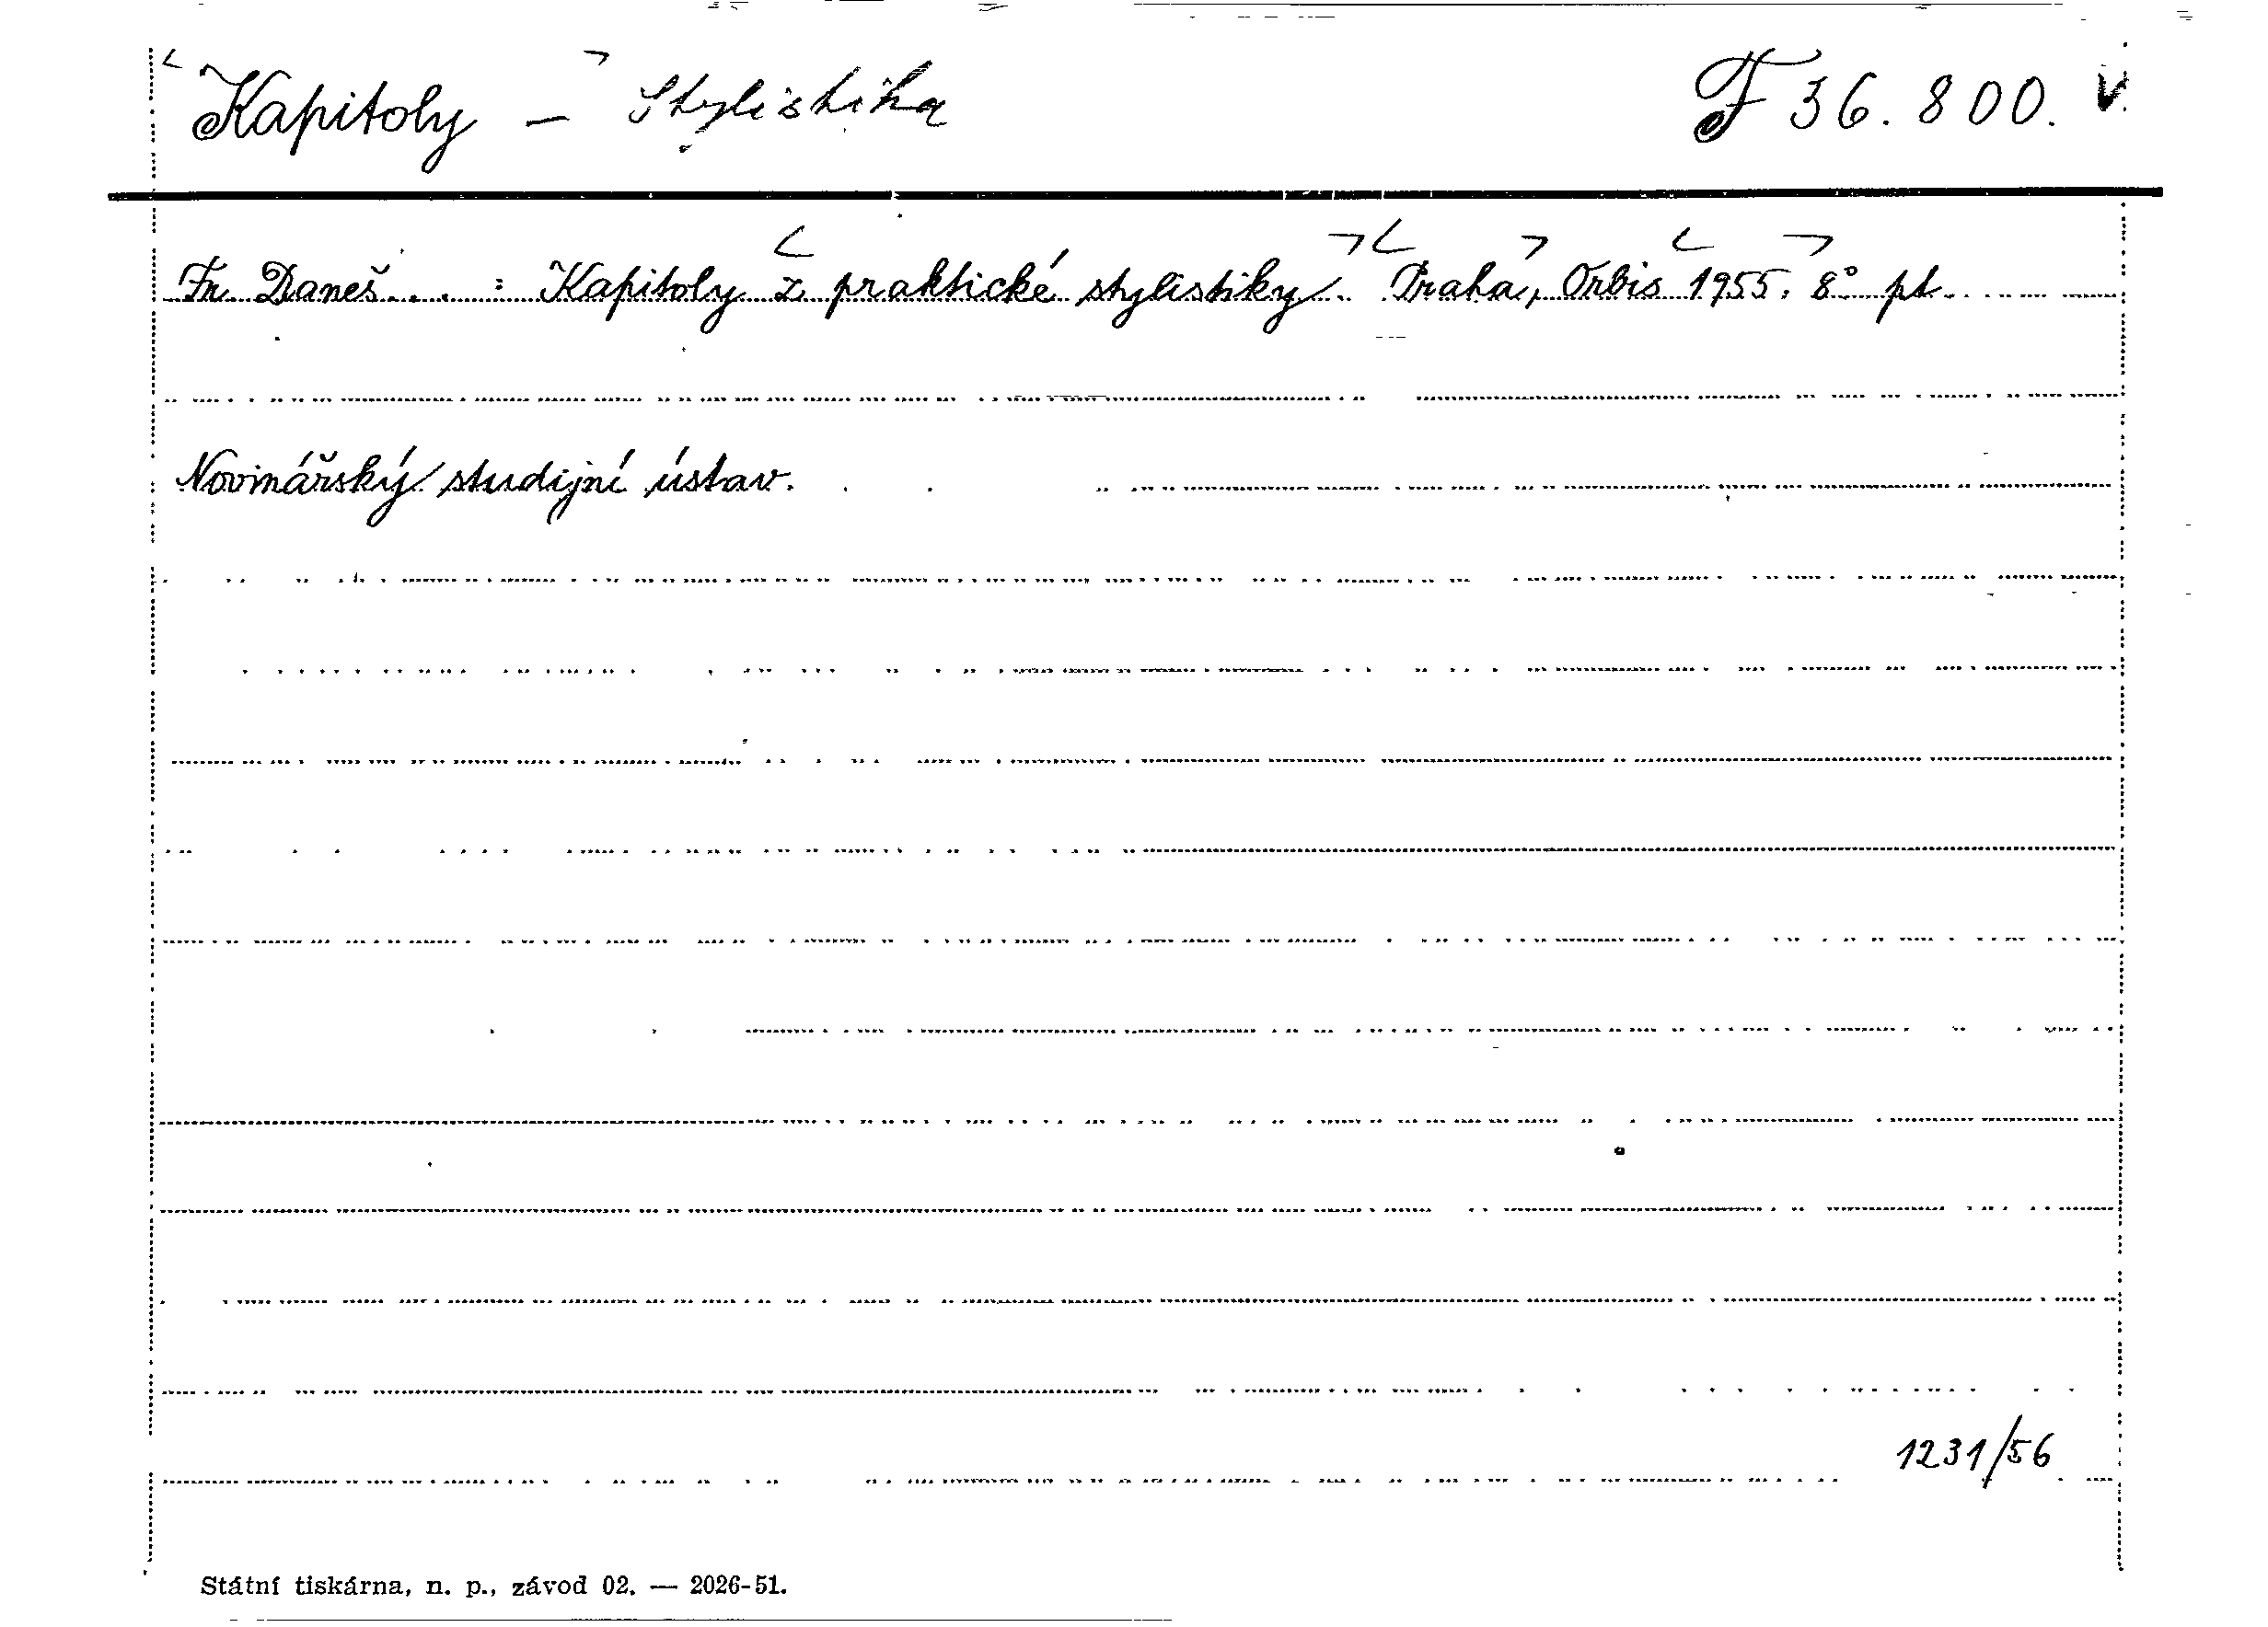 Kapitoly - Stylistika F 36.800. V.
Fr. Daneš... : Kapitoly z praktické stylistiky. Praha, Orbis 1955. 8° pt.
Novinářský studijní ústav.
1231/56
Státní tiskárna, n. p., závod 02. — 2026-51.